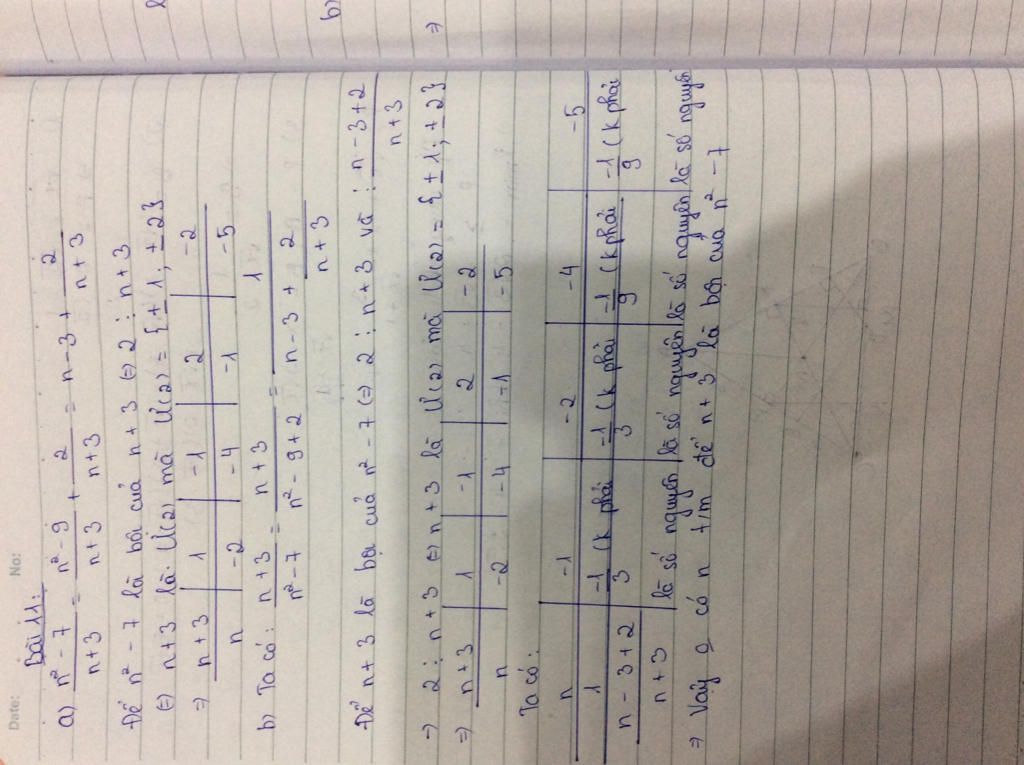 Date: No:
Bài 11:
a) n² - 7 / n + 3 = n² - 9 / n + 3 + 2 / n + 3 = n - 3 + 2 / n + 3
Để n² - 7 là bội của n + 3 ⇔ 2 ⋮ n + 3
⇔ n + 3 là Ư(2) mà Ư(2) = {± 1; ± 2}
⇒ n + 3 | 1 | -1 | 2 | -2
n | -2 | -4 | -1 | -5
b) Ta có: n + 3 / n² - 7 = n + 3 / n² - 9 + 2 = 1 / n - 3 + 2 / n + 3
Để n + 3 là bội của n² - 7 ⇔ 2 ⋮ n + 3 và ⋮ n - 3 + 2 / n + 3 ⇒
⇒ 2 ⋮ n + 3 ⇔ n + 3 là Ư(2) mà Ư(2) = {± 1; ± 2}
⇒ n + 3 | 1 | -1 | 2 | -2
n | -2 | -4 | -1 | -5
Ta có:
n | -1 | -2 | -4 | -5
1 / n - 3 + 2 / n + 3 | -1/3 (k phải là số nguyên | -1/3 (k phải là số nguyên | -1/9 (k phải là số nguyên | -1/9 (k phải là số nguyên
⇒ Vậy có n t/m để n + 3 là bội của n² - 7
b)